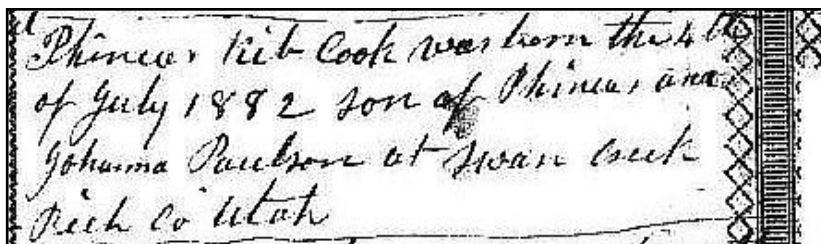 Phineas Kib Cook was born the 4th
of July 1882 son of Phineas and
Johanna Paulson at Swan Creek
Rich Co Utah